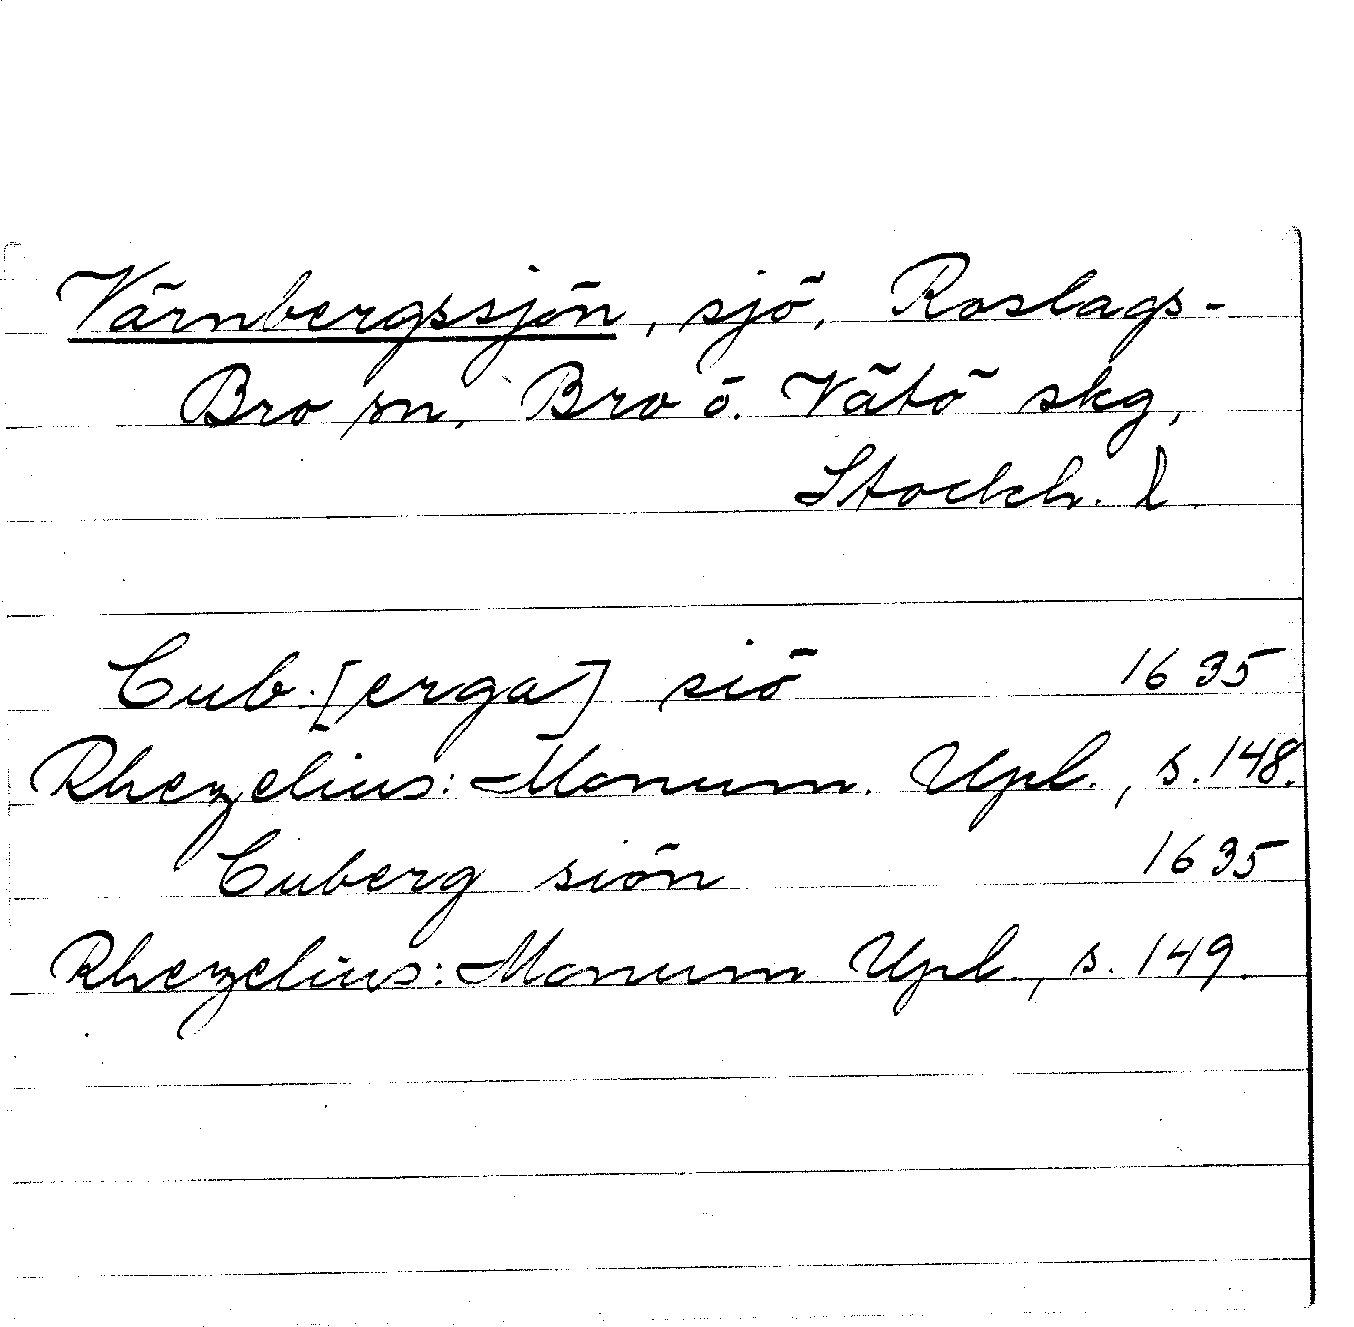 Värnbergssjön, sjö, Roslags-
Bro sn, Bro ö. Vätö skg,
Stockh. l.
Cub.[erga] siö 1635
Rhezelius: Monum. Upl., s. 148.
Cuberg siön 1635
Rhezelius: Monum Upl., s. 149.